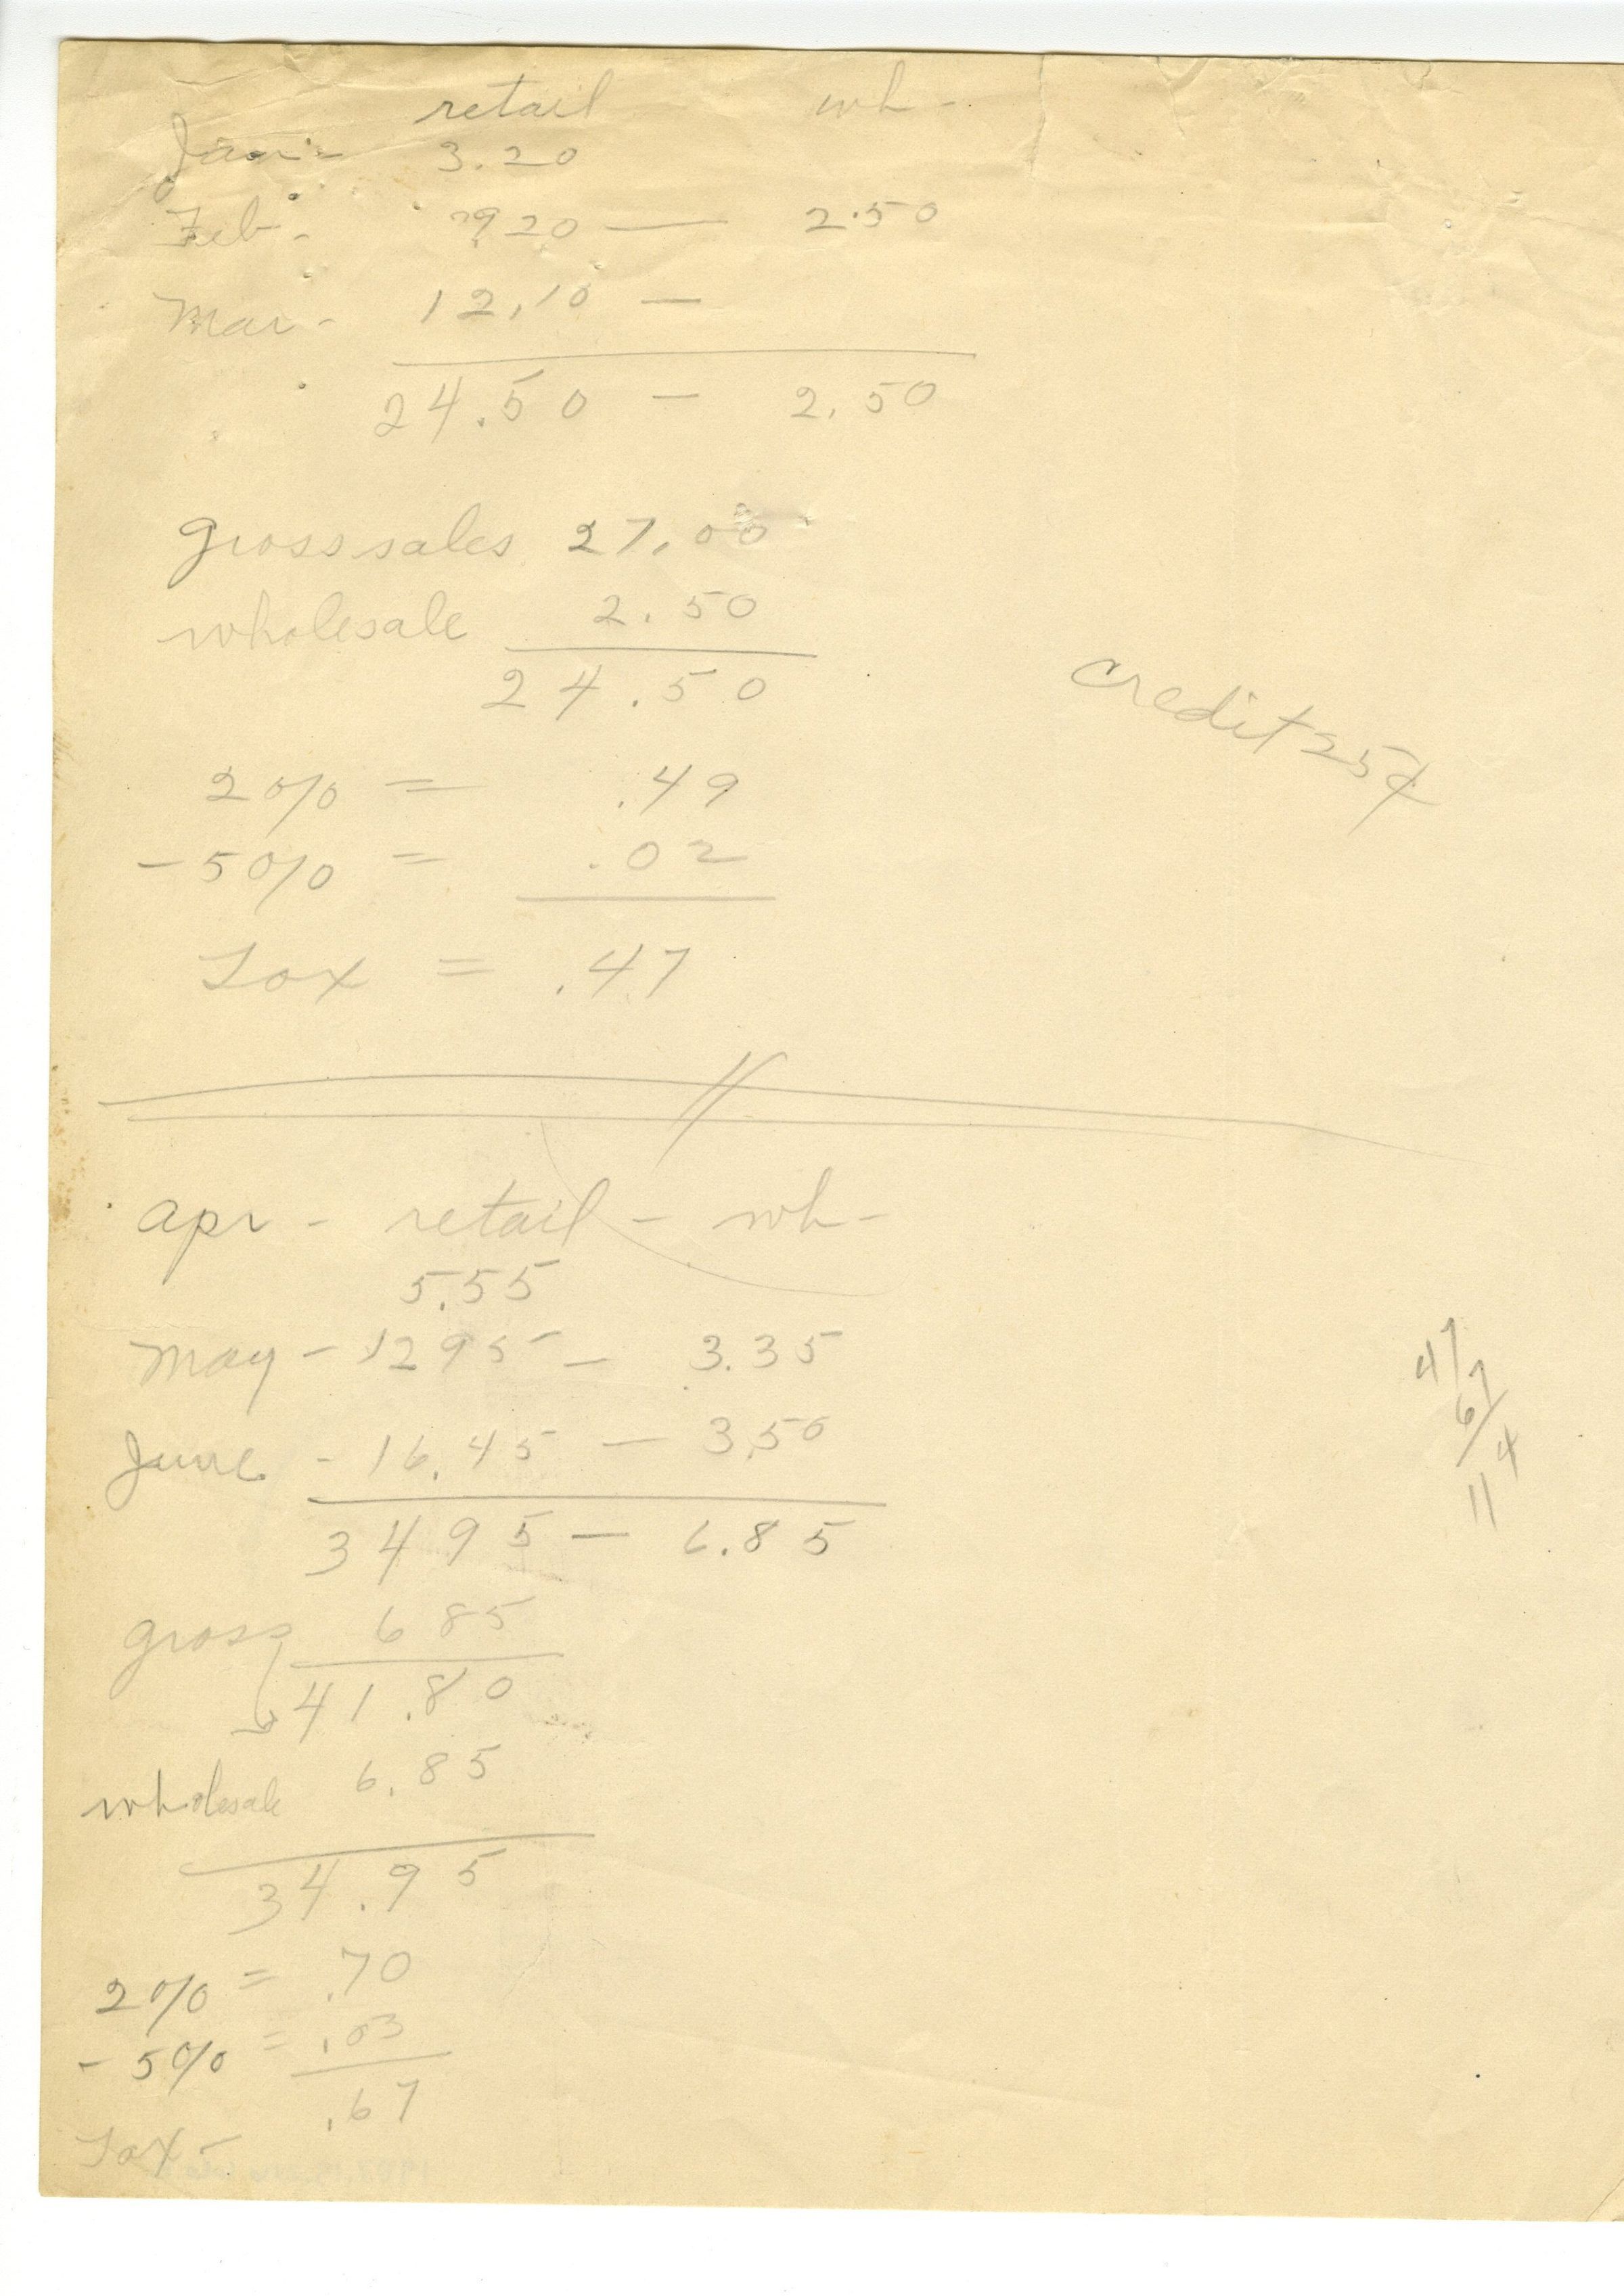 retail wh -
Jan - 3.20
Feb - 9 20 — 2.50
Mar - 12.10 —
24.50 - 2.50
gross sales 27.00
wholesale 2.50
24.50
credit 25¢
2% = .49
- 5% = .02
Tax = .47
apr - retail - wh -
5.55
May - 12 95 - 3.35
June - 16.45 - 3.50
34 95 - 6.85
gross 6 85
41.80
wholesale 6.85
34.95
2% = .70
- 5% = .03
.67
Tax -
47
67
114